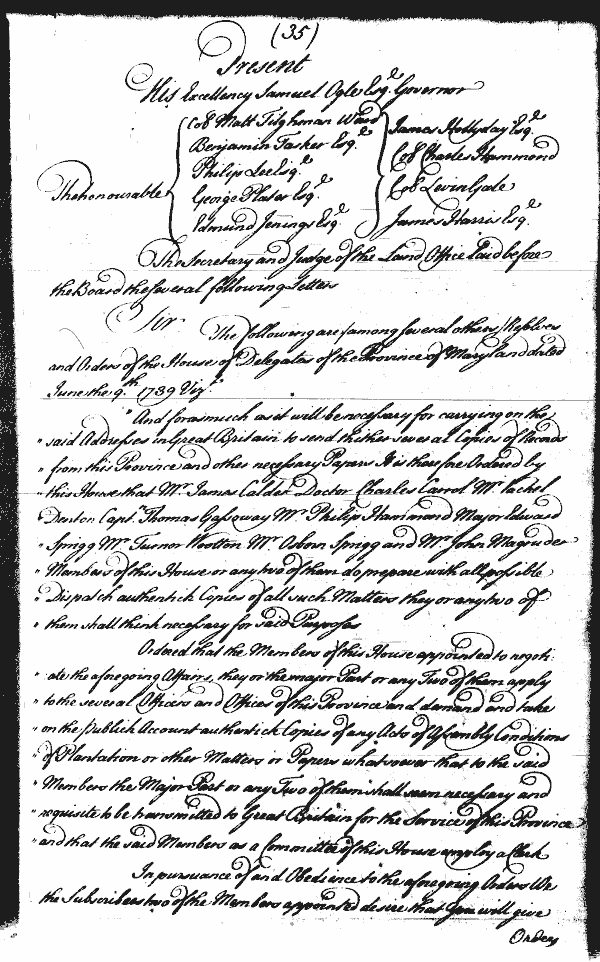 (35)
Present
His Excellency Samuel Ogle Esqr. Governor
Col Matt Tilghman Ward
James Hollyday Esqr.
Benjamin Tasker Esqr.
Col Charles Hammond
Philip Lee Esqr.
The honourable
George Plater Esqr.
Col Levin Gale
Edmund Jenings Esqr.
James Harris Esqr.
The Secretary and Judge of the Land Office laid before
the Board the several following Letters
Sir
The following are among several others Resolves
and Orders of the House of Delegates of the Province of Maryland dated
June the 9th. 1739 Vizt.
"And forasmuch as it will be necessary for carrying on the
" said Addresses in Great Britain to send thither several Copies of Records
" from this Province and other necessary Papers It is therefore Ordered by
" this House that Mr. James Calder Doctor Charles Carrol Mr. Vachel
" Denton Capt. Thomas Gassaway Mr. Philip Hammond Major Edward
" Sprigg Mr. Turnor Wootton Mr. Osborn Sprigg and Mr. John Magruder
" Members of this House or any two of them do prepare with all possible
" Dispatch authentick Copies of all such Matters they or any two of
" them shall think necessary for said Purposes
Ordered that the Members of this House appointed to negoti-
" ate the aforegoing Affairs, they or the major Part or any Two of them apply
" to the several Officers and Offices of this Province and demand and take
" on the Publick Account authentick Copies of any Acts of Assembly Conditions
" of Plantation or other Matters or Papers whatsoever that to the said
" Members the Major Part or any Two of them shall seem necessary and
" requisite to be transmitted to Great Britain for the Service of this Province
" and that the said Members as a Committee of this House employ a Clerk
In pursuance of and Obedience to the aforegoing Orders We
the Subscribers two of the Members appointed desire that you will give
Orders